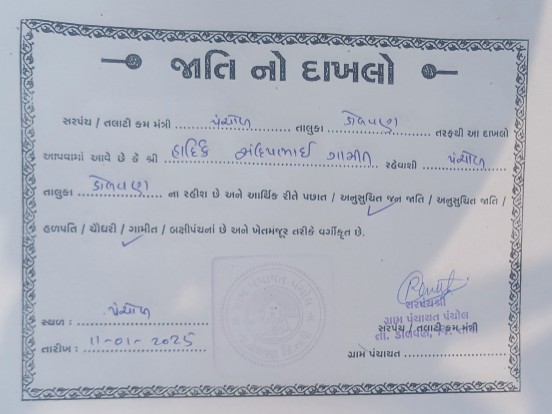 જાતિ નો દાખલો
સરપંચ / તલાટી કમ મંત્રી પંચોળ તાલુકા ડોલવણ તરફથી આ દાખલો
આપવામાં આવે છે કે શ્રી હાર્દિક સંદિપભાઈ ગામીત રહેવાશી પંચોળ
તાલુકા ડોલવણ ના રહીશ છે અને આર્થિક રીતે પછાત / અનુસુચિત જન જાતિ / અનુસુચિત જાતિ /
હળપતિ / ચૌધરી / ગામીત / બક્ષીપંચનાં છે અને ખેતમજૂર તરીકે વર્ગીકૃત છે.
સ્થળ : પંચોળ
તારીખ : 11-01-2025
સરપંચશ્રી
ગ્રામ પંચાયત પંચોલ
સરપંચ / તલાટી કમ મંત્રી
તા. ડોલવણ,
ગ્રામે પંચાયત